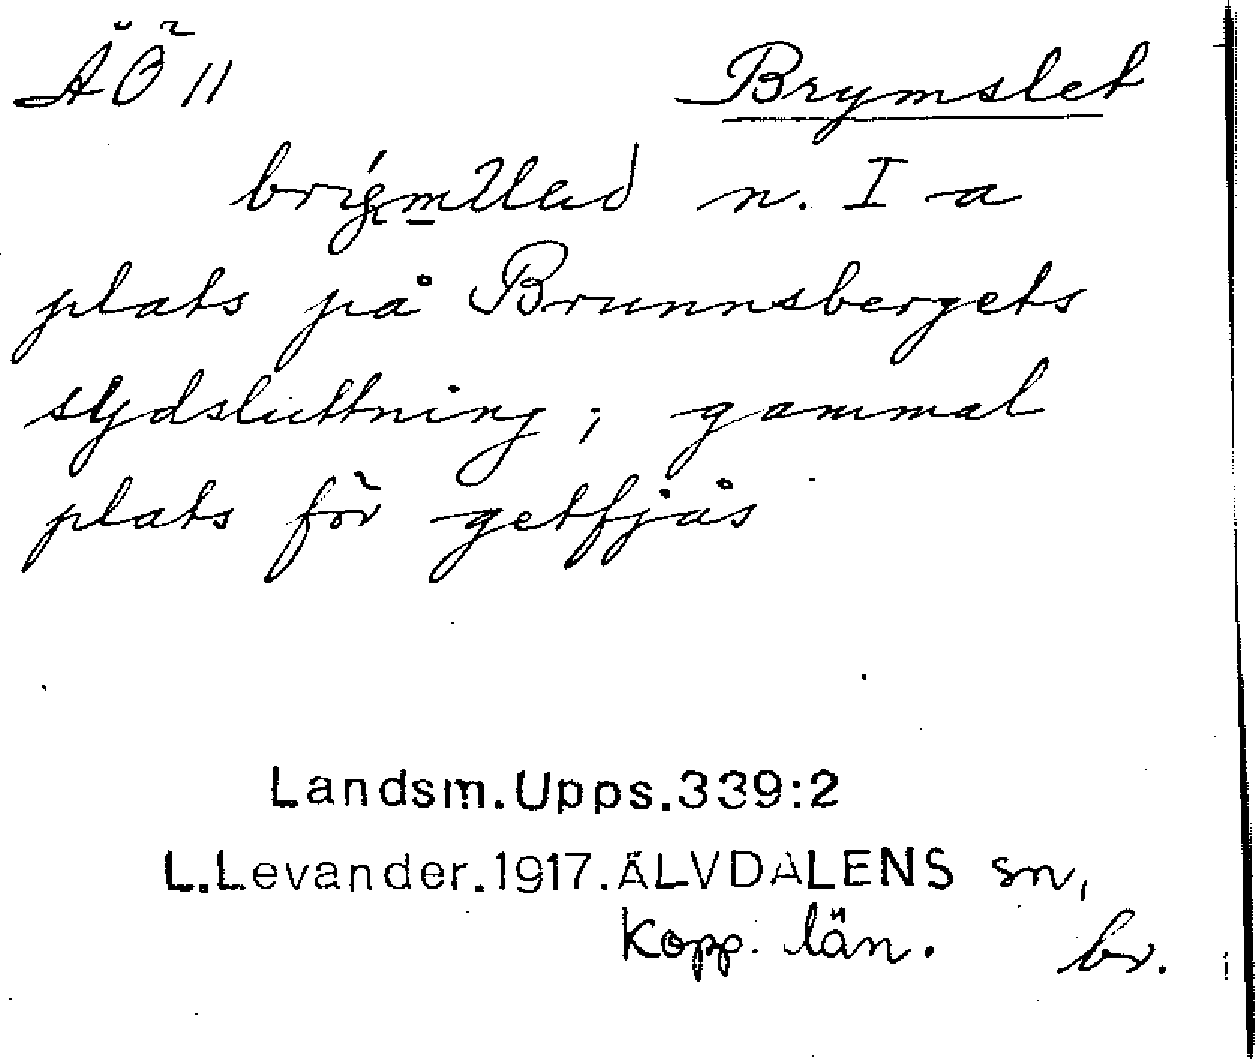 ÄÖ 11 Brymslet
n. I a
plats på Brunnsbergets
sydsluttning; gammal
plats för getfjås
Landsm.Upps.339:2
L.Levander.1917.ÄLVDALENS sn,
Kopp. län. br.